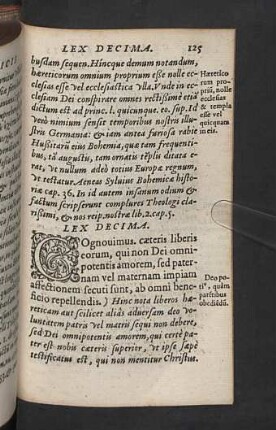 LEX DECIMA. 125
busdam sequen. Hincque demum notandum,
hæreticorum omnium proprium esse nolle ec-
clesias esse vel ecclesiastica vlla. Vnde in ec-
clesiam Dei conspirare omnes rectissimè etiā
dictum est ad princ. l. quicunque. eo. sup. Id
verò nimium sensit temporibus nostris illu-
stris Germania: & iam antea furiosa rabie
Hussitarū eius Bohemia, quæ tam frequenti-
bus, tā augustis, tam ornatis tēplis ditata e-
rat, vt nullum adeò totius Europæ regnum,
vt testatur Aeneas Syluius Bohemicæ histo-
riæ cap. 36. In id autem insanum odium &
factum scripserunt complures Theologi cla-
rissimi, & nos reip. nostræ lib. 2. cap. 5.
Hæretico
rum pro-
priū, nolle
ecclesias
& templa
esse vel
quicquam
in eis.
LEX DECIMA.
COgnouimus. cæteris liberis
eorum, qui non Dei omni-
potentis amorem, sed pater-
nam vel maternam impiam
affectionem secuti sunt, ab omni bene-
ficio repellendis.) Hinc nota liberos hæ-
reticam aut scilicet aliās aduersam deo vo-
luntatem patris vel matris sequi non debere,
sed Dei omnipotentis amorem, qui certè pa-
ter est nobis cæteris superior, vt ipse sæpè
testificatus est, qui non mentitur Christus.
Deo po-
tiº, quàm
patribus
obediēdū.